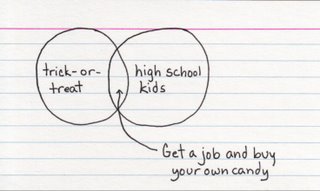 trick-or-
treat
high school
kids
Get a job and buy
your own candy